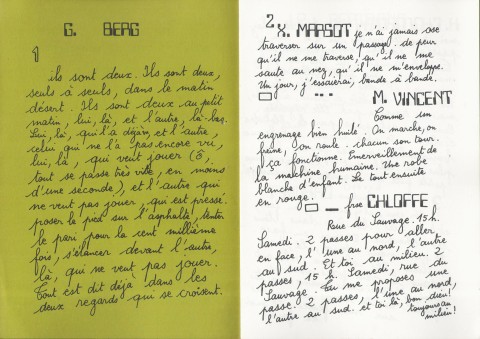 G. BERG
1
ils sont deux. Ils sont deux,
seuls à seuls, dans le matin
désert. Ils sont deux au petit
matin, lui, là, et l'autre, là-bas.
Lui, là, qui l'a déjà vu, et l'autre,
celui qui ne l'a pas encore vu,
lui, là, qui veut jouer (ô,
tout se passe très vite, en moins
d'une seconde), et l'autre qui
ne veut pas jouer, qui est pressé.
poser le pied sur l'asphalte, tenter
le pari pour la cent millième
fois, s'élancer devant l'autre,
là, qui ne veut pas jouer.
Tout est dit déjà dans les
deux regards qui se croisent.
2
X. MARGOT je n'ai jamais osé
traverser sur un passage. de peur
qu'il ne me traverse, qu'il ne me
saute au nez, qu'il ne m'enveloppe.
Un jour, j'essaierai, bande à bande.
M. VINCENT
Comme un
engrenage bien huilé. On marche, on
freine, on roule chacun son tour.
ça fonctionne. Emerveillement de
la machine humaine. Une robe
blanche d'enfant. Le tout ensuite
en rouge.
frse CHLOFFE
Rue du Sauvage. 15h.
Samedi. 2 passes pour aller
en face, l'une au nord, l'autre
au sud. Et toi au milieu. 2
passes, 15h. Samedi, rue du
Sauvage. Tu me proposes une
passe. 2 passes, l'une au nord,
l'autre au sud. et toi là, bon dieu!
toujours au
milieu!